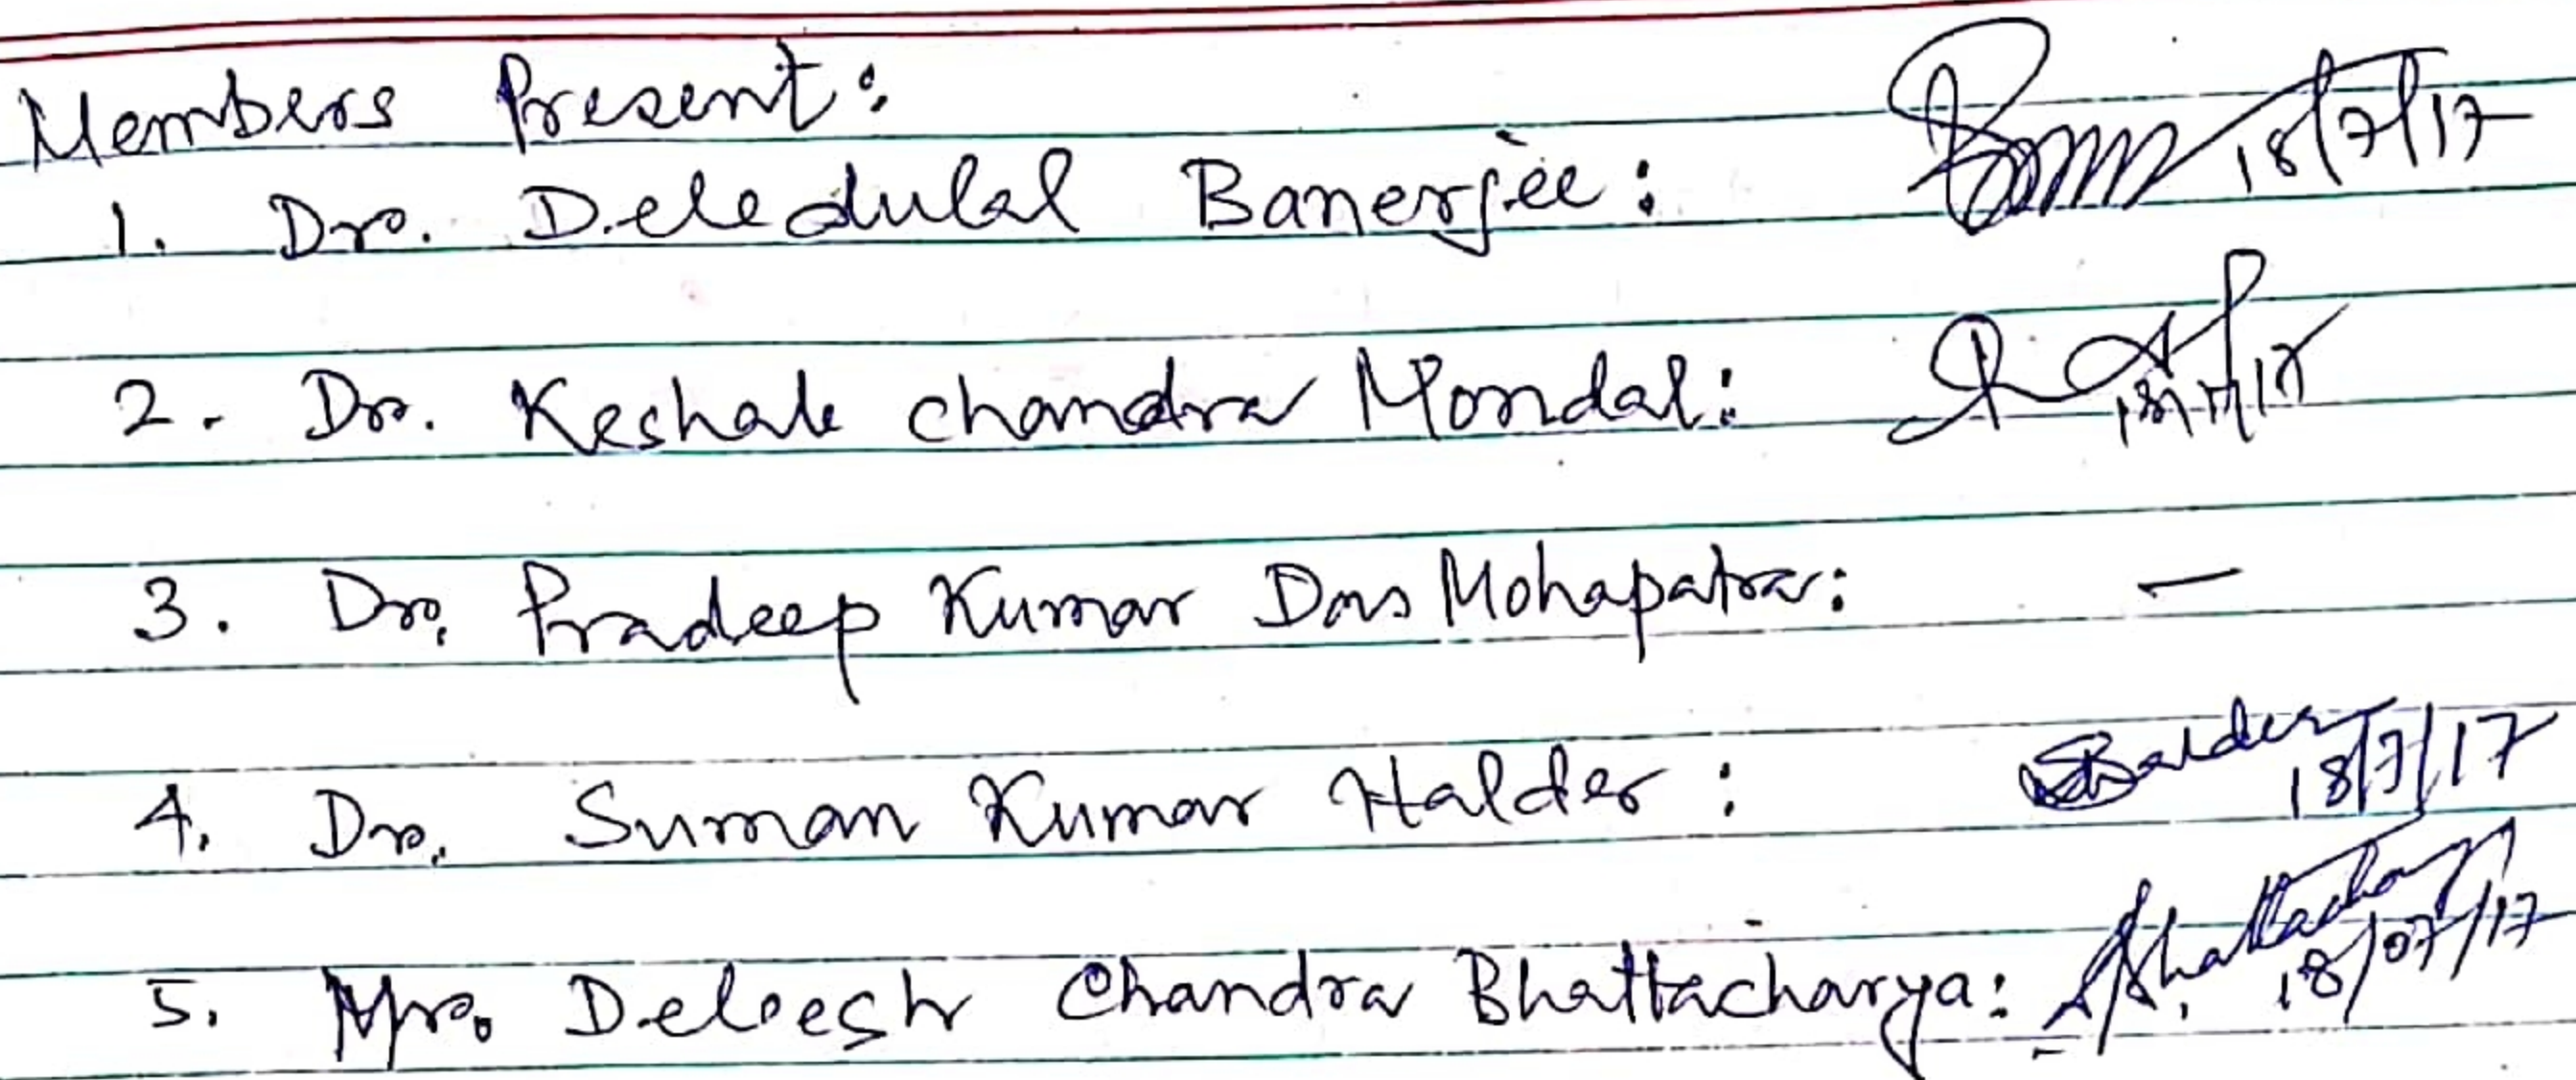 Members Present:
1. Dr. Debdulal Banerjee: 18/7/17
2. Dr. Keshab chandra Mondal: 18/7/17
3. Dr. Pradeep Kumar Das Mohapatra: —
4. Dr. Suman Kumar Halder: 18/7/17
5. Mr. Debesh Chandra Bhattacharya: 18/07/17